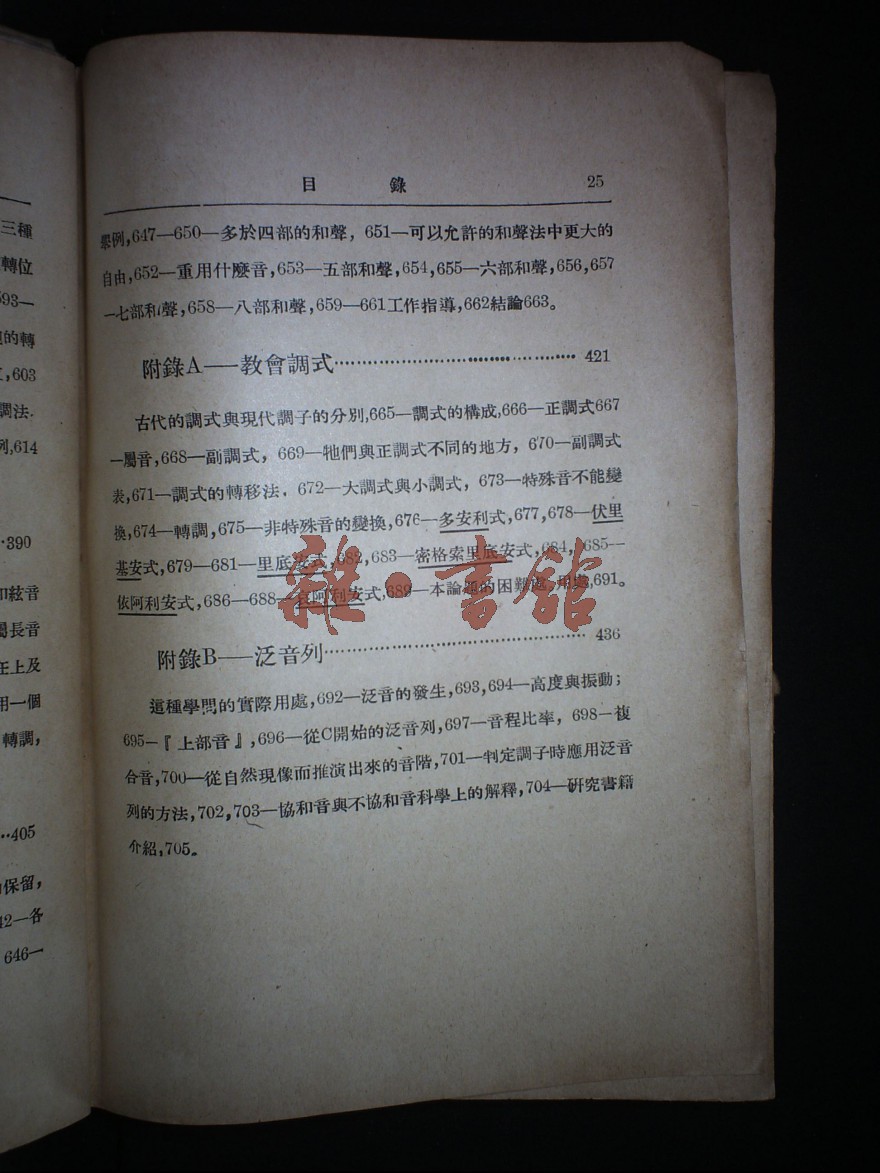 三種
轉位
593—
的轉
,603
調法.
列,614
·390
和絃音
屬長音
在上及
用一個
轉調,
··405
保留,
42—各
646—
目 錄 25
舉例,647—650—多於四部的和聲, 651—可以允許的和聲法中更大的
自由,652—重用什麼音,653—五部和聲,654,655—六部和聲,656,657
—七部和聲,658—八部和聲,659—661工作指導,662結論663。
附錄A——教會調式 421
古代的調式與現代調子的分別,665—調式的構成,666—正調式667
—屬音,668—副調式, 669—牠們與正調式不同的地方, 670—副調式
表,671—調式的轉移法. 672—大調式與小調式, 673—特殊音不能變
換,674—轉調,675—非特殊音的變換,676—多安利式,677,678—伏里
基安式,679—681—里底安式,682,683—密格索里底安式,684, 685—
依阿利安式,686—688—哀阿利安式,689—本論題的困難處,691。
雜·書館
附錄B——泛音列 436
這種學問的實際用處,692—泛音的發生,693,694—高度與振動;
695—『上部音』,696—從C開始的泛音列,697—音程比率, 698—複
合音,700—從自然現像而推演出來的音階,701—判定調子時應用泛音
列的方法,702,703—協和音與不協和音科學上的解釋,704—研究書籍
介紹,705。